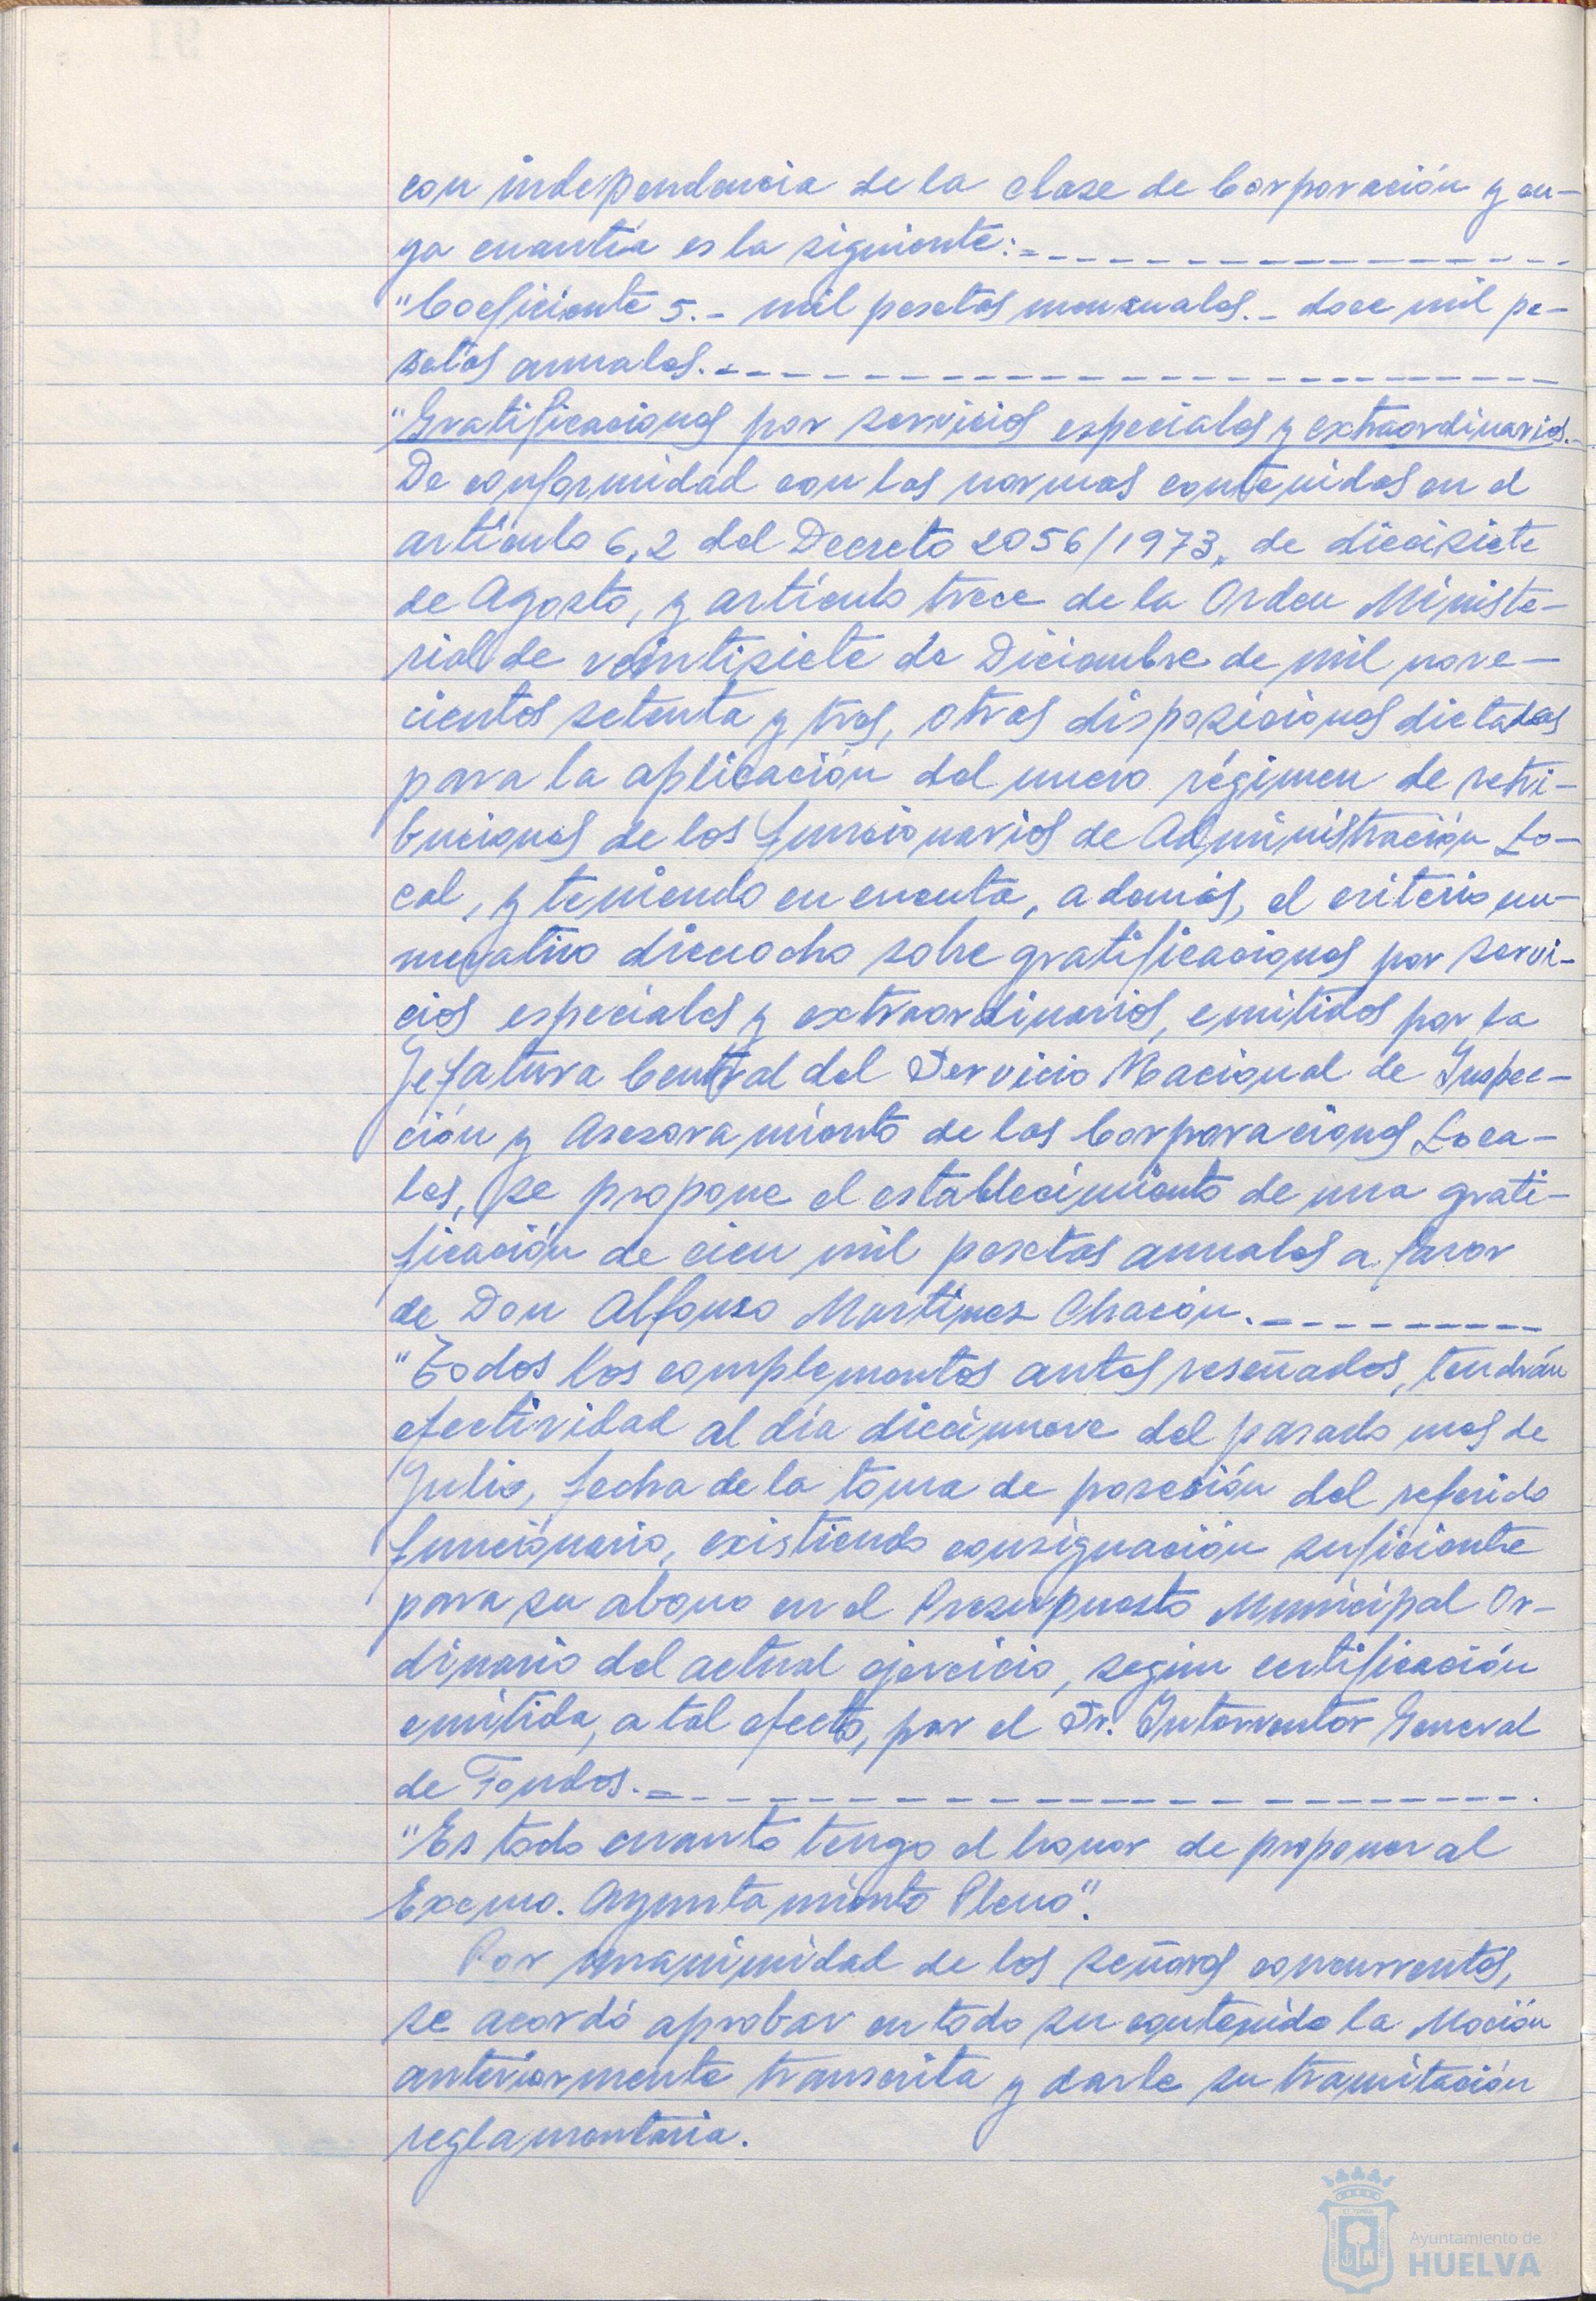 con independencia de la clase de Corporación y cu-
ya cuantía es la siguiente:
"Coeficiente 5.- mil pesetas mensuales.- doce mil pe-
setas anuales.
"Gratificaciones por servicios especiales y extraordinarios.-
De conformidad con las normas contenidas en el
artículo 6,2 del Decreto 2056/1973, de diecisiete
de Agosto, y artículo trece de la Orden Ministe-
rial de veintisiete de Diciembre de mil nove-
cientos setenta y tres, otras disposiciones dictadas
para la aplicación del nuevo régimen de retri-
buciones de los funcionarios de Administración Lo-
cal, y teniendo en cuenta, además, el criterio nu-
merativo dieciocho sobre gratificaciones por servi-
cios especiales y extraordinarios, emitidos por la
Jefatura Central del Servicio Nacional de Inspec-
ción y Asesoramiento de las Corporaciones Loca-
les, se propone el establecimiento de una grati-
ficación de cien mil pesetas anuales a favor
de Don Alfonso Martínez Chacón.
"Todos los complementos antes reseñados, tendrán
efectividad al día diecinueve del pasado mes de
Julio, fecha de la toma de posesión del referido
funcionario, existiendo consignación suficiente
para su abono en el Presupuesto Municipal Or-
dinario del actual ejercicio, según certificación
emitida, a tal efecto, por el Sr. Interventor General
de Fondos.
"Es todo cuanto tengo el honor de proponer al
Excmo. Ayuntamiento Pleno".
Por unanimidad de los señores concurrentes,
se acordó aprobar en todo su contenido la Moción
anteriormente transcrita y darle su tramitación
reglamentaria.
Ayuntamiento de
HUELVA